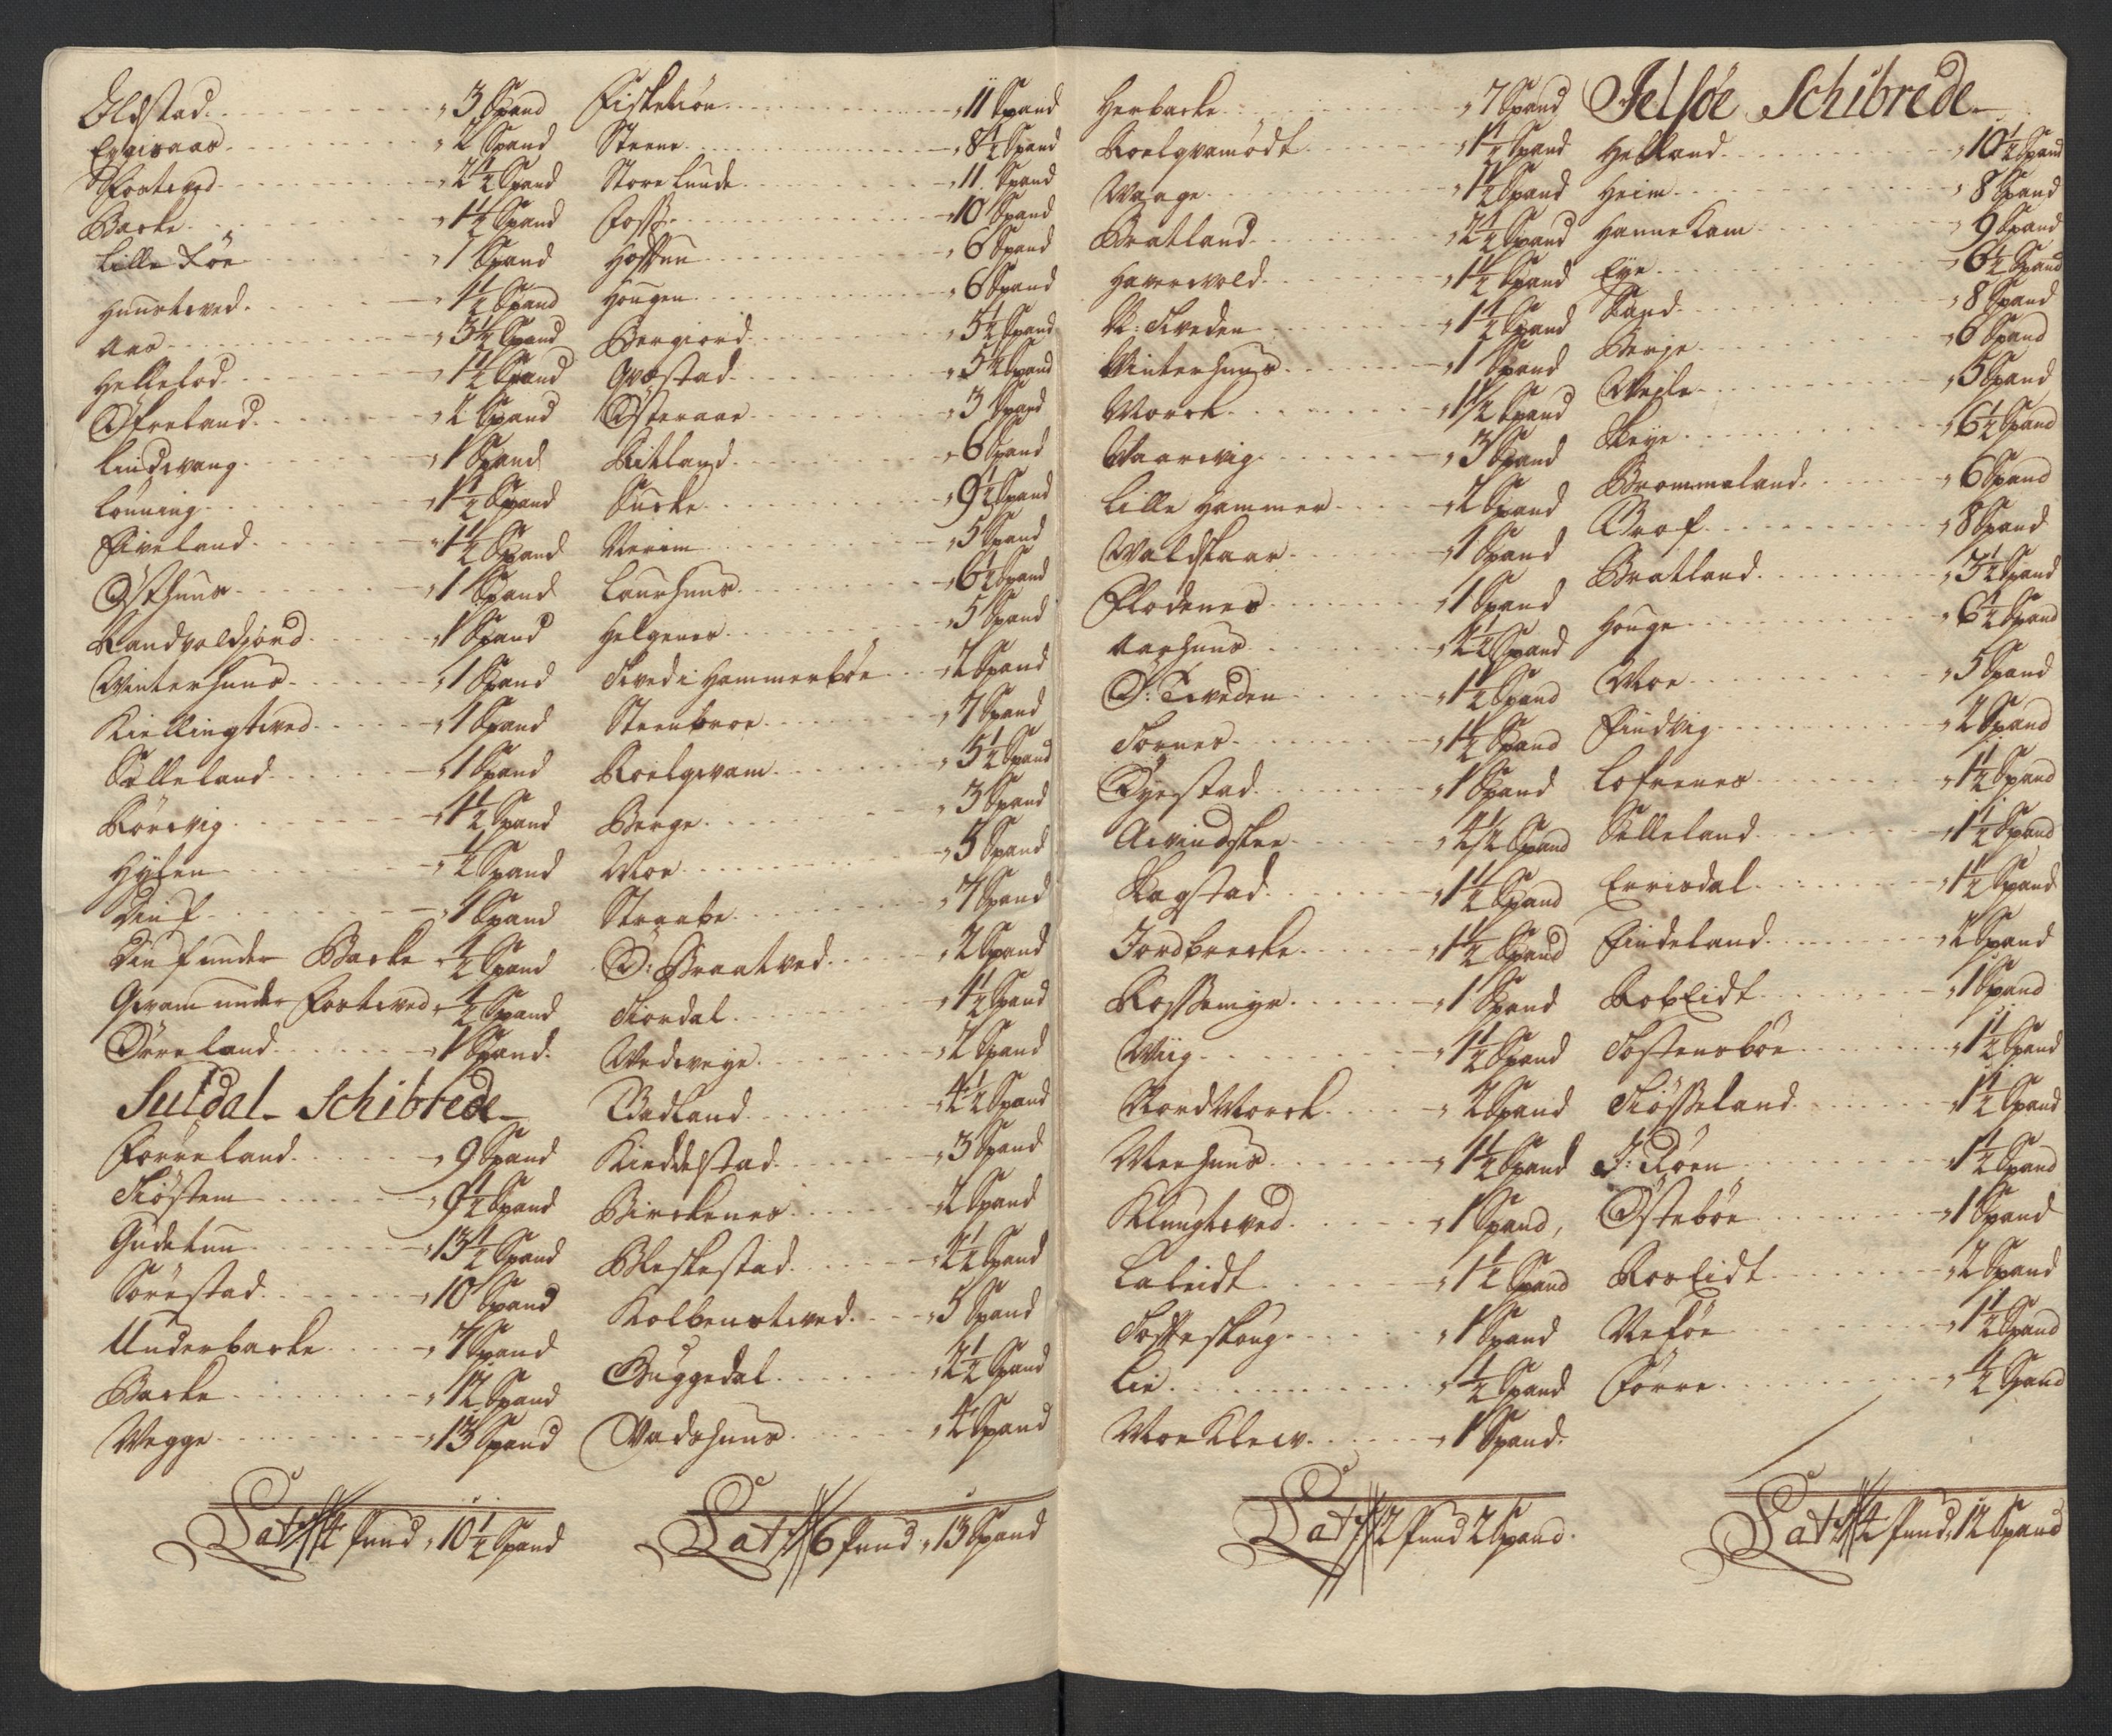 Oldstad - 3 Spand
Eggisaas - 2 Spand
Fortved - 2 1/2 Spand
Barke - 1 1/2 Spand
Lille Röe - 1 Spand
Huustved - 1/2 Spand
Aas - 3 1/2 Spand
Hellelod - 1 1/2 Spand
Öfreland - 2 Spand
Lindevang - 1 Spand
Lönning - 1 1/2 Spand
Eiveland - 1 1/2 Spand
Östhuus - 1 Spand
Randvoldjord - 1 Spand
Vinterhuus - 1 Spand
Kiellingtved - 1 Spand
Selleland - 1 Spand
Rörvig - 1 1/2 Spand
Hylen - 1/2 Spand
Vinf - 1 Spand
Vinf under Barke - 1/2 Spand
Qvam under Fortved - 1/2 Spand
Döreland - 1 Spand.
Suldal Schibrede
Förreland - 9 Spand
Kiöstem - 9 1/2 Spand
Gudetun - 13 1/2 Spand
Sörestad - 10 Spand
Underbarke - 7 Spand
Barke - 12 Spand
Vegge - 13 Spand
Lat 4 Pund, 10 1/2 Spand
Fisketiön - 11 Spand
Steene - 8 1/2 Spand
Store Lunde - 11 Spand
Fosse - 10 Spand
Hoftun - 6 Spand
Hougen - 6 Spand
Bergiord - 5 1/2 Spand
Qvæstad - 5 1/2 Spand
Österaae - 3 Spand
Litland - 6 Spand
Surke - 9 1/2 Spand
Nerim - 5 Spand
Laurhuus - 6 1/2 Spand
Helgenes - 5 Spand
Tved i Hammerböe - 2 Spand
Steenbroe - 7 Spand
Roelqvam - 5 1/2 Spand
Berge - 3 Spand
Moe - 5 Spand
Straabe - 7 Spand
Ö: Braatved - 2 Spand
Fiordal - 1 1/2 Spand
Vedveye - 2 Spand
Vadland - 4 1/2 Spand
Kieddestad - 3 Spand
Birckenes - 2 Spand
Bleskestad - 2 1/2 Spand
Kolbenstved - 5 Spand
Guggedal - 2 1/2 Spand
Vadshuus - 4 Spand
Lat 6 Pund, 13 Spand
Herbacke - 7 Spand
Roelqvamödt - 1 1/2 Spand
Vaage - 1 1/2 Spand
Bratland - 2 1/2 Spand
Haverevold - 1 1/2 Spand
N: Tveden - 1 1/2 Spand
Vinterhuus - 1 Spand
Morck - 1 1/2 Spand
Vaarevig - 3 Spand
Lille Hammer - 2 Spand
Valdskaar - 1 Spand
Flodenes - 1 Spand
Aarhuus - 2 1/2 Spand
Ö: Tveden - 1 1/2 Spand
Fornes - 1 1/2 Spand
Dyrstad - 1 Spand
Eivindskee - 4 1/2 Spand
Bagstad - 1 1/2 Spand
Jordbrecke - 1 1/2 Spand
Rossemyr - 1 Spand
Viig - 1 1/2 Spand
Nord Morck - 2 Spand
Meehuus - 1 1/2 Spand
Klungtved - 1 Spand,
Laleidt - 1 1/2 Spand
Tofteskoug - 1 Spand
Lie - 1/2 Spand
Moe Kleiv - 1 Spand.
Lat 2 Pund 2 Spand.
Jelsöe Schibrede
Helland - 10 1/2 Spand
Heim - 8 Spand
Hanne Kam - 9 Spand
Eye - 6 1/2 Spand
Sand - 8 Spand
Berge - 6 Spand
Vejle - 5 Spand
Skeye - 6 1/2 Spand
Brommeland - 6 Spand
Prof - 8 Spand
Bratland - 3 1/2 Spand
Houge - 6 1/2 Spand
Moe - 5 Spand
Findvig - 2 Spand
Lofrenes - 1 1/2 Spand
Selleland - 1 1/2 Spand
Errisdal - 1 1/2 Spand
Findeland - 2 Spand
RobEidt - 1 Spand
Tostensböe - 1 1/2 Spand
Kiösseland - 1 1/2 Spand
J: Röen - 1 1/2 Spand
Östeböe - 1 Spand
RosEidt - 2 Spand
Nesöe - 1 1/2 Spand
Förre - 1/2 Spand
Lat 4 Pund, 12 Spand